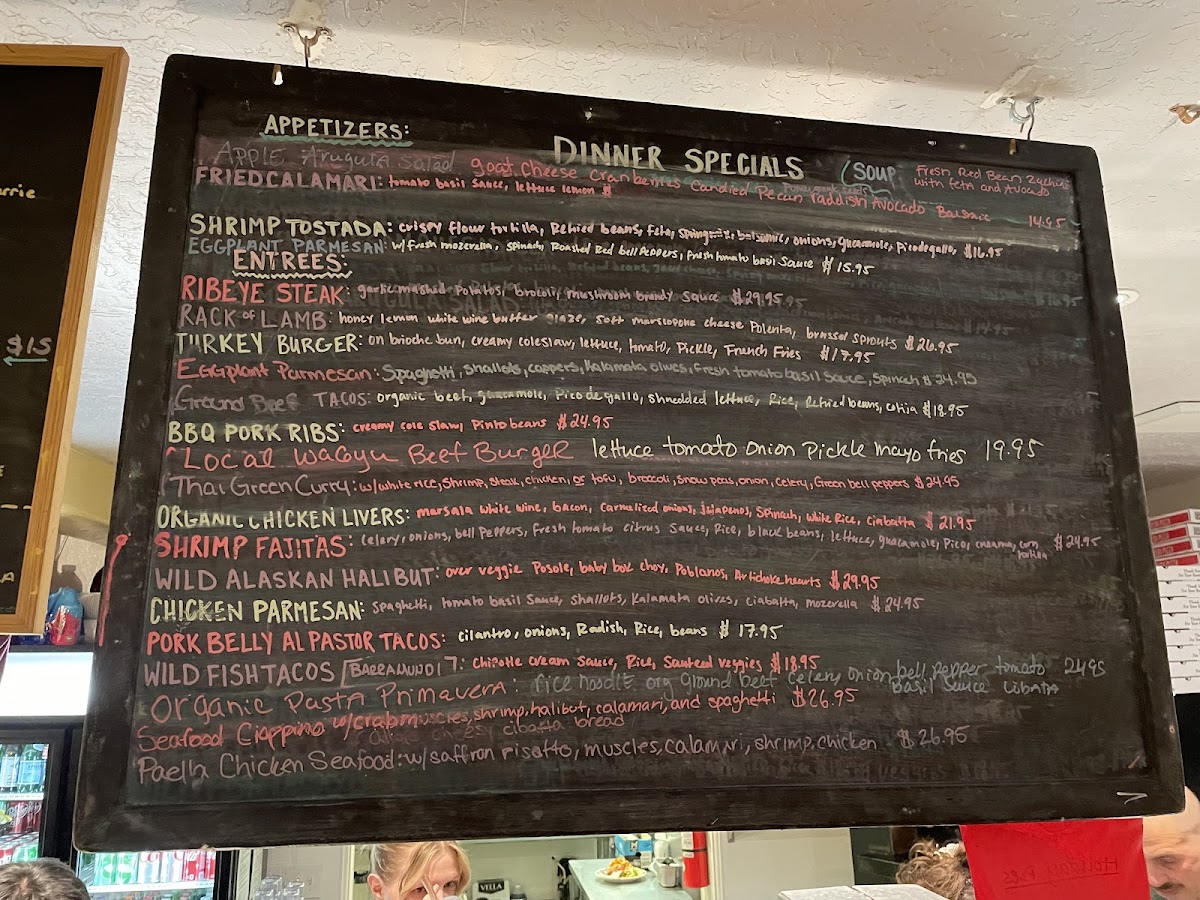 APPETIZERS:
DINNER SPECIALS
SOUP
Fresh Red Bean Zuchini
with feta and Avocado
APPLE Arugula Salad goat cheese Cranberries Candied Pecan raddish Avocado Balsmic 14.95
FRIED CALAMARI: tomato basil sauce, lettuce lemon $
SHRIMP TOSTADA: crispy flour tortilla, Refried beans, feta, balsamic, onions, guacamole, Pico de gallo, $16.95
EGGPLANT PARMESAN: w/ fresh mozerella, spinach, Roasted Red bell Peppers, Fresh tomato basil Sauce $15.95
ENTREES:
RIBEYE STEAK: garlic mashed Potatos, brocoli, mushroom brandy sauce $29.95
RACK OF LAMB: honey lemon white wine butter glaze, soft marscopone cheese Polenta, brussel sprouts $26.95
TURKEY BURGER: on brioche bun, creamy coleslaw, lettuce, tomato, Pickle, French Fries $17.95
Eggplant Parmesan: Spaghetti, shallots, cappers, Kalamata olives, fresh tomato basil Sauce, Spinach $24.95
Ground Beef TACOS: organic beef, guacamole, Pico de gallo, shredded lettuce, Rice, Refried beans, cotija $18.95
BBQ PORK RIBS: creamy cole slaw, Pinto beans $24.95
Local Wagyu Beef Burger lettuce tomato onion Pickle mayo fries 19.95
Thai Green Curry: w/white rice, Shrimp, Steak, chicken, or tofu, broccoli, Snow peas, onion, celery, Green bell peppers $24.95
ORGANIC CHICKEN LIVERS: marsala white wine, bacon, Carmelized onions, Jalapenos, Spinach, white Rice, ciabatta $21.95
SHRIMP FAJITAS: Celery, onions, bell Peppers, Fresh tomato citrus Sauce, Rice, black beans, lettuce, guacamole, Pico, crema, corn tortilla $24.95
WILD ALASKAN HALIBUT: over veggie Posole, baby bok choy, Poblanos, Artichoke hearts $29.95
CHICKEN PARMESAN: spaghetti, tomato basil Sauce, shallots, Kalamata olives, ciabatta, mozerella $24.95
PORK BELLY AL PASTOR TACOS: cilantro, onions, Radish, Rice, beans $17.95
WILD FISH TACOS [BARRAMUNDI]: chipotle cream Sauce, Rice, Sauteed veggies $18.95
Organic Pasta Primavera: rice noodle org ground beef celery onion bell pepper tomato 24.95
basil sauce
Seafood Cioppino w/crab, muscles, shrimp, halibut, calamari, and spaghetti $26.95
cibatta bread
Paella Chicken Seafood: w/saffron risotto, muscles, calamari, shrimp, chicken $26.95
$15
VELLA